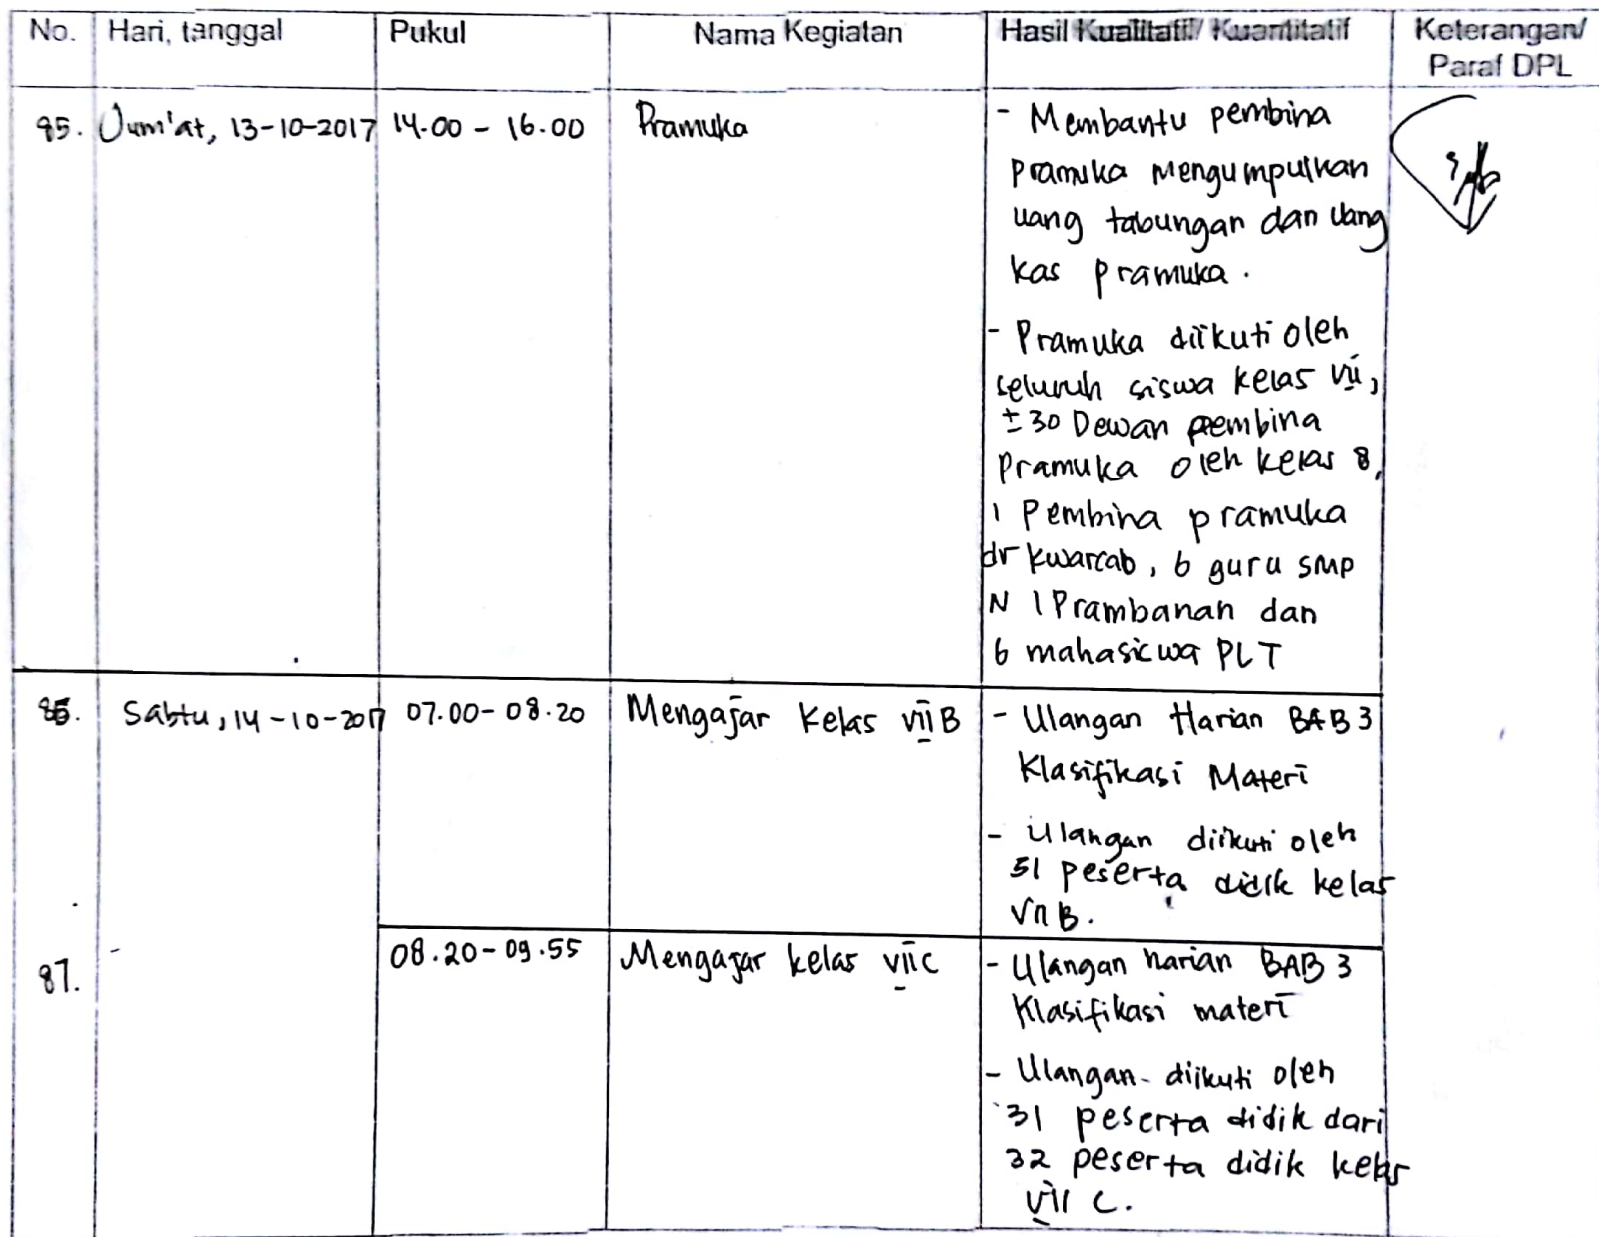 No. Hari, tanggal Pukul Nama Kegiatan Hasil Kualitatif/ Kuantitatif Keterangan/
Paraf DPL
85. Jum'at, 13-10-2017 14.00 - 16.00 Pramuka - Membantu pembina
pramuka mengumpulkan
uang tabungan dan uang
kas pramuka.
- Pramuka diikuti oleh
seluruh siswa kelas VII,
± 30 Dewan pembina
Pramuka oleh kelas 8,
1 Pembina pramuka
dr kwarcab, 6 guru SMP
N 1 Prambanan dan
6 mahasiswa PLT
86. Sabtu, 14-10-2017 07.00 - 08.20 Mengajar Kelas VII B - Ulangan Harian BAB 3
Klasifikasi Materi
- Ulangan diikuti oleh
31 peserta didik kelas
VII B.
87. 08.20 - 09.55 Mengajar kelas VII C - Ulangan harian BAB 3
Klasifikasi materi
- Ulangan diikuti oleh
31 peserta didik dari
32 peserta didik kelas
VII C.